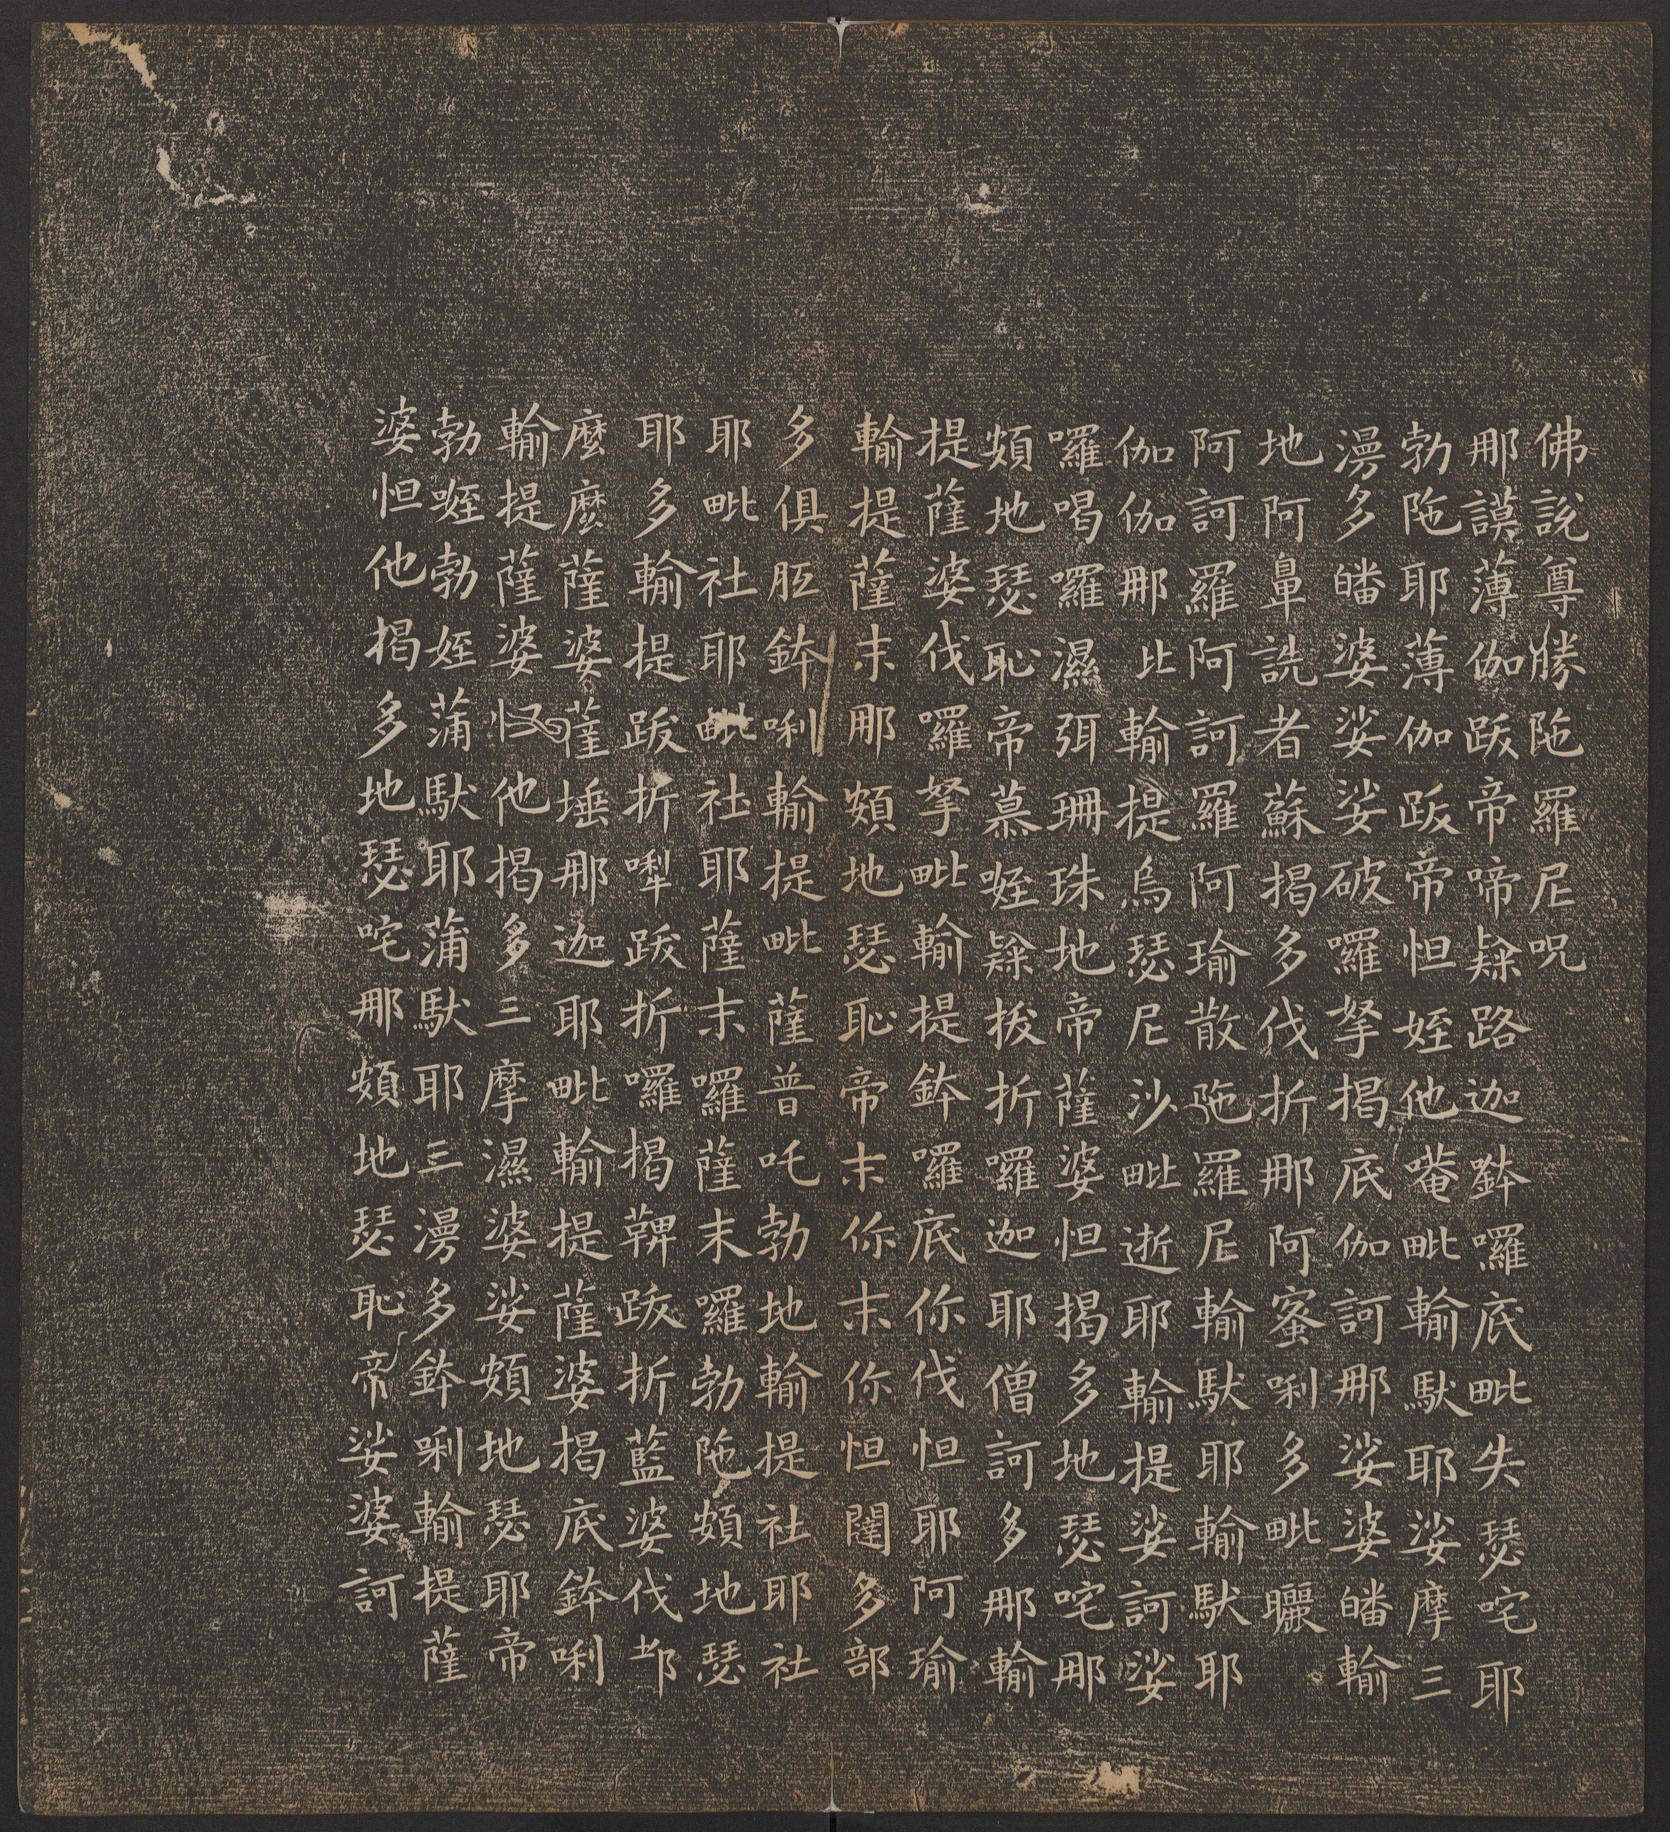 佛說尊勝陁羅尼呪
那謨薄伽跋帝啼隸路迦鉢囉底毗失瑟咤耶
勃陁耶薄伽跋帝怛姪他唵毗輸馱耶娑摩三
漫多皤婆娑娑破囉拏揭底伽訶那娑婆皤輸
地阿鼻詵者蘇揭多伐折那阿蜜唎多毗曬
阿訶羅阿訶羅阿瑜散陁羅尼輸馱耶輸馱耶
伽伽那比輸提烏瑟尼沙毗逝耶輸提娑訶娑
囉喝囉濕弭珊珠地帝薩婆怛揭多地瑟咤那
頞地瑟恥帝慕姪隸拔折囉迦耶僧訶多那輸
提薩婆伐囉拏毗輸提鉢囉底你伐怛耶阿瑜
輸提薩末那頞地瑟恥帝末你末你怛闥多部
多俱胝鉢唎輸提毗薩普吒勃地輸提社耶社
耶毗社耶毗社耶薩末囉薩末囉勃陁頞地瑟
耶多輸提跋折犁跋折囉揭鞞跋折藍婆伐都
麼麼薩婆薩埵那迦耶毗輸提薩婆揭底鉢唎
輸提薩婆怛他揭多三摩濕婆娑頞地瑟耶帝
勃姪勃姪蒲馱耶蒲馱耶三漫多鉢唎輸提薩
婆怛他揭多地瑟咤那頞地瑟恥帝娑婆訶